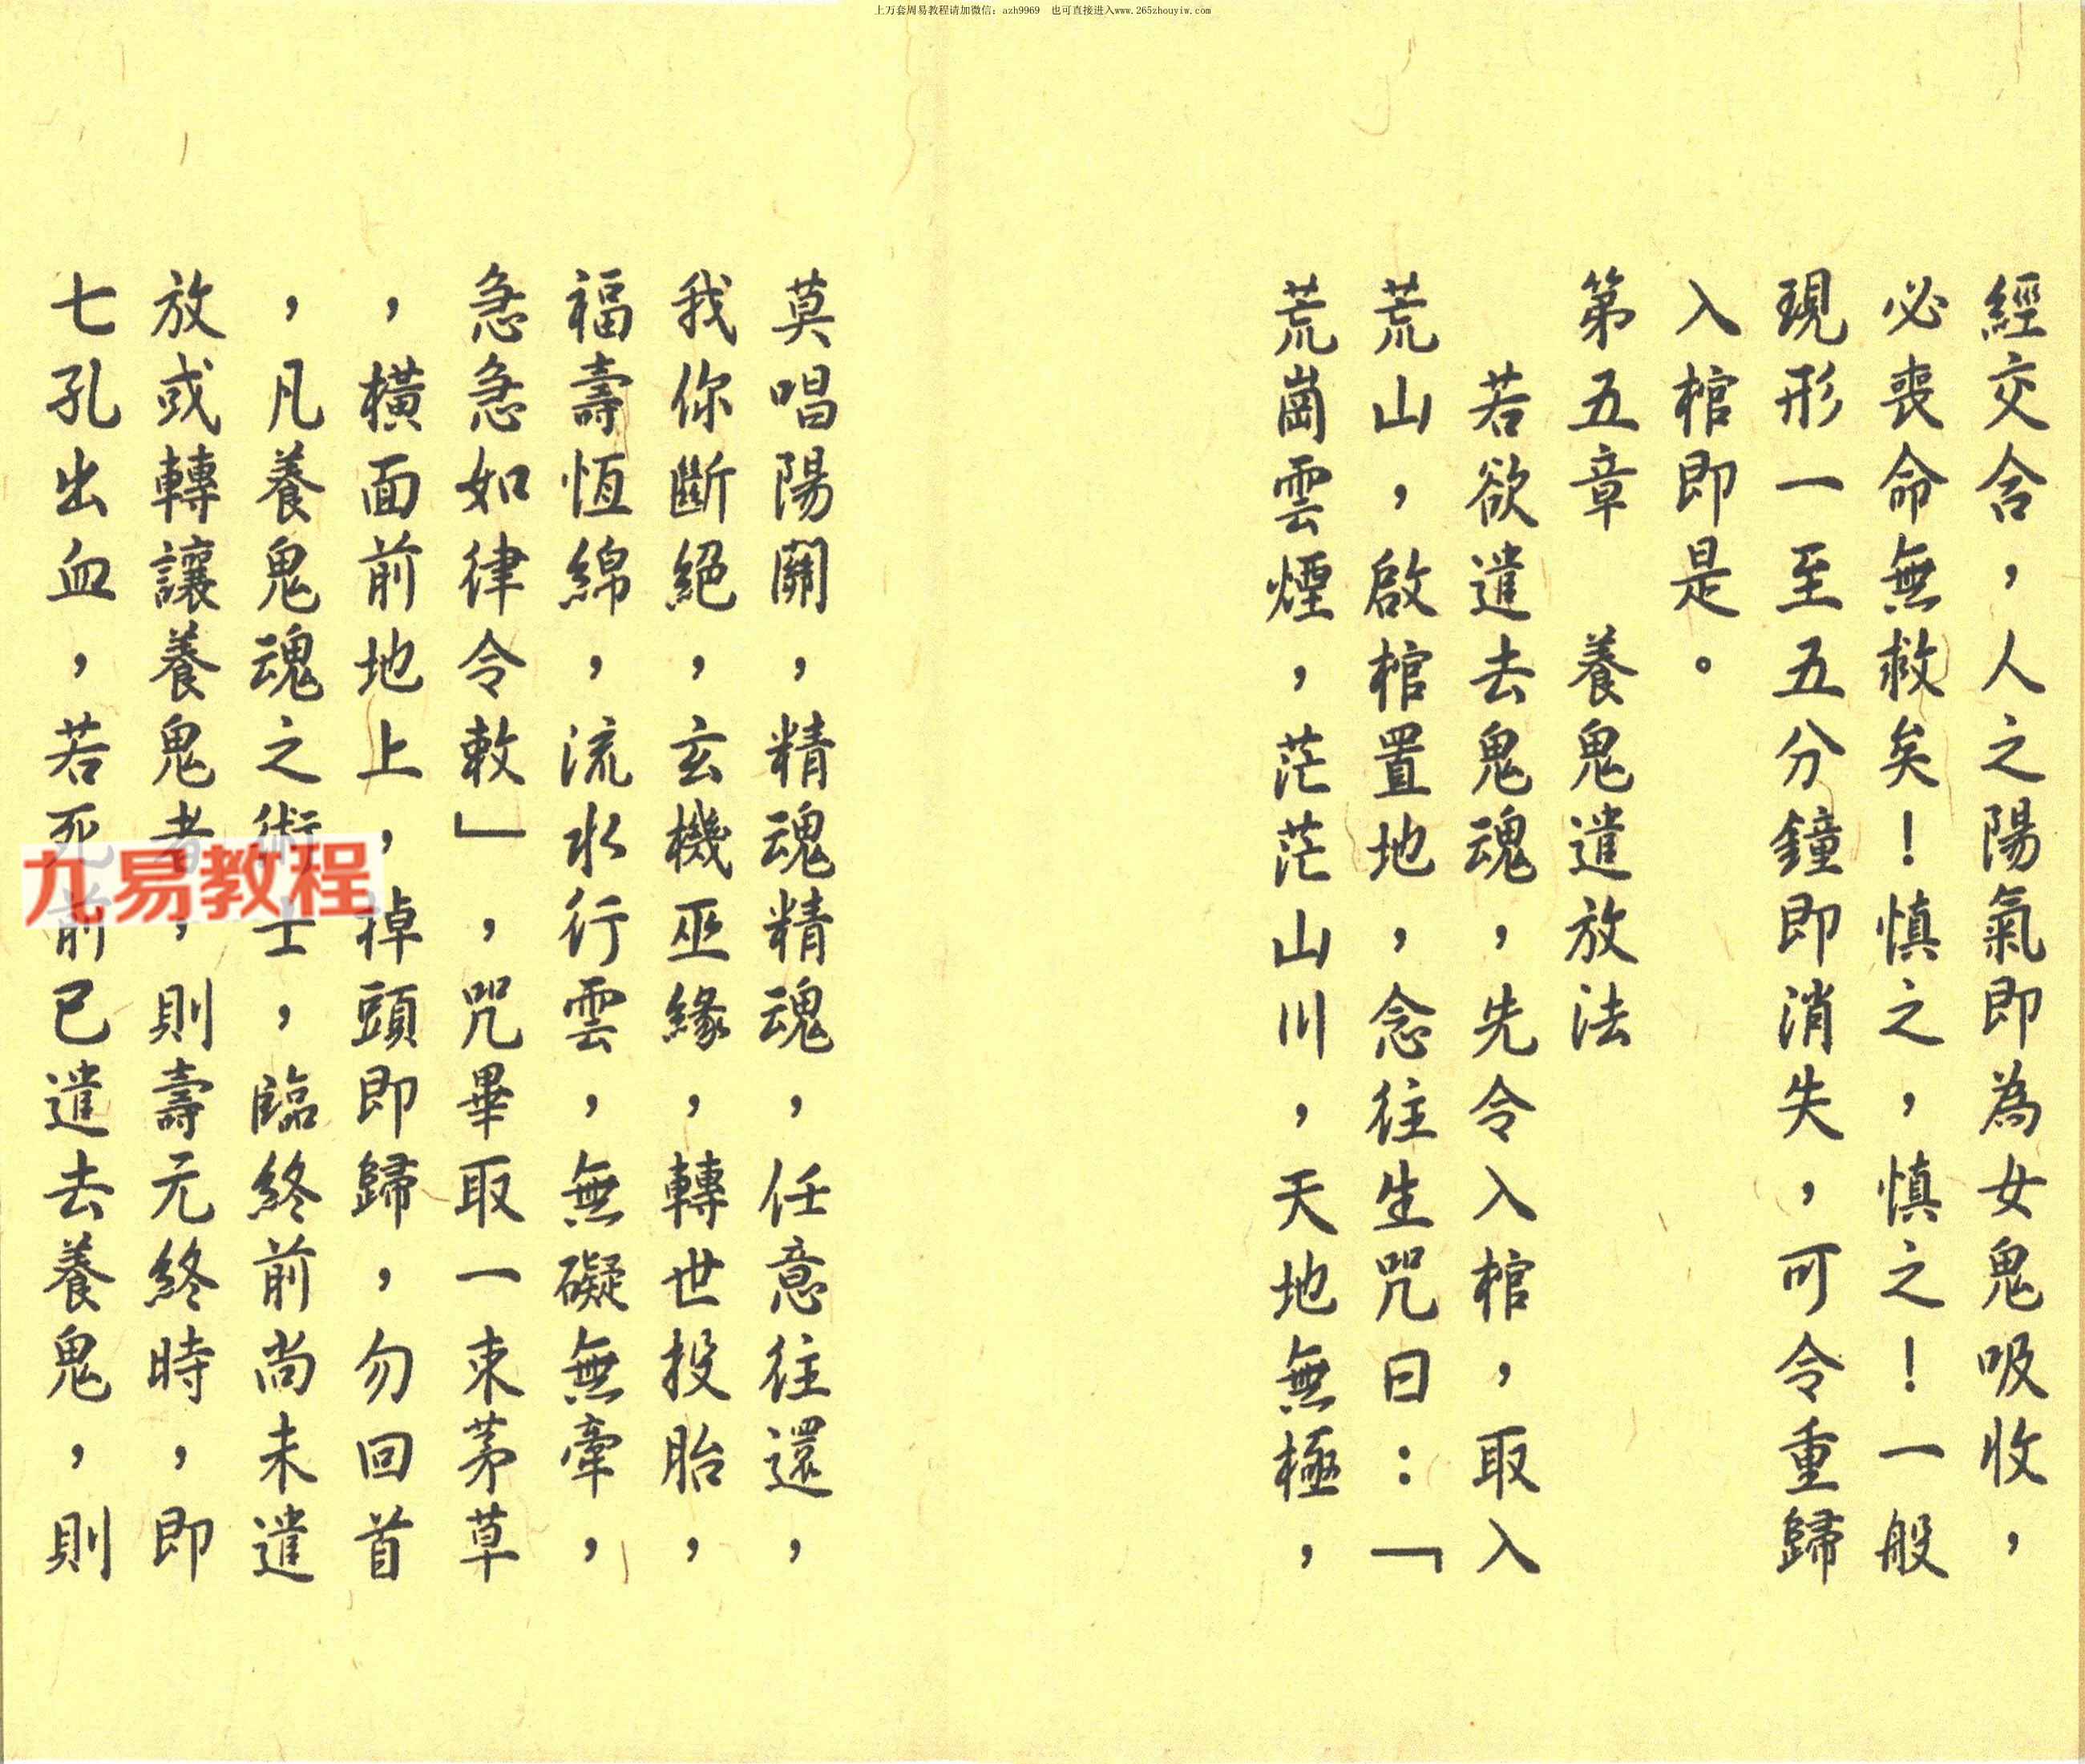 上万套周易教程请加微信：azh9969 也可直接进入www.265zhouyiw.com
經交合，人之陽氣即為女鬼吸收，
必喪命無救矣！慎之，慎之！一般
現形一至五分鐘即消失，可令重歸
入棺即是。
第五章 養鬼遣放法
若欲遣去鬼魂，先令入棺，取入
荒山，啟棺置地，念往生咒曰：「
荒崗雲煙，茫茫山川，天地無極，
莫唱陽關，精魂精魂，任意往還，
我你斷絕，玄機巫緣，轉世投胎，
福壽恆綿，流水行雲，無礙無牽，
急急如律令敕」，咒畢取一束茅草
，橫面前地上，掉頭即歸，勿回首
，凡養鬼魂之術士，臨終前尚未遣
放或轉讓養鬼者，則壽元終時，即
七孔出血，若死前已遣去養鬼，則
九易教程